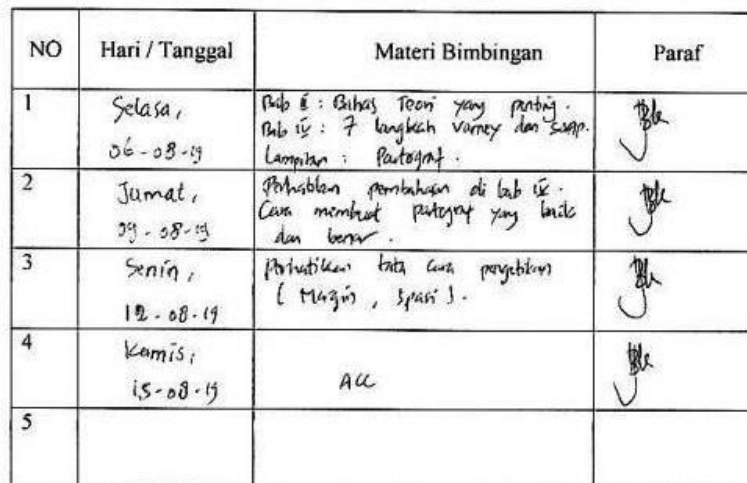 NO Hari / Tanggal Materi Bimbingan Paraf
1 Selasa, Bab II : Bahas Teori yang penting.
Bab IV : 7 langkah varney dan soap.
06-08-19 Lampiran : Partograf.
2 Jumat, Perhatikan pembahasan di bab IV.
Cara membuat partograf yang baik
09-08-19 dan benar.
3 Senin, Perhatikan tata cara pengetikan
( Margin, spasi ).
12-08-19
4 Kamis,
15-08-19 ACC
5